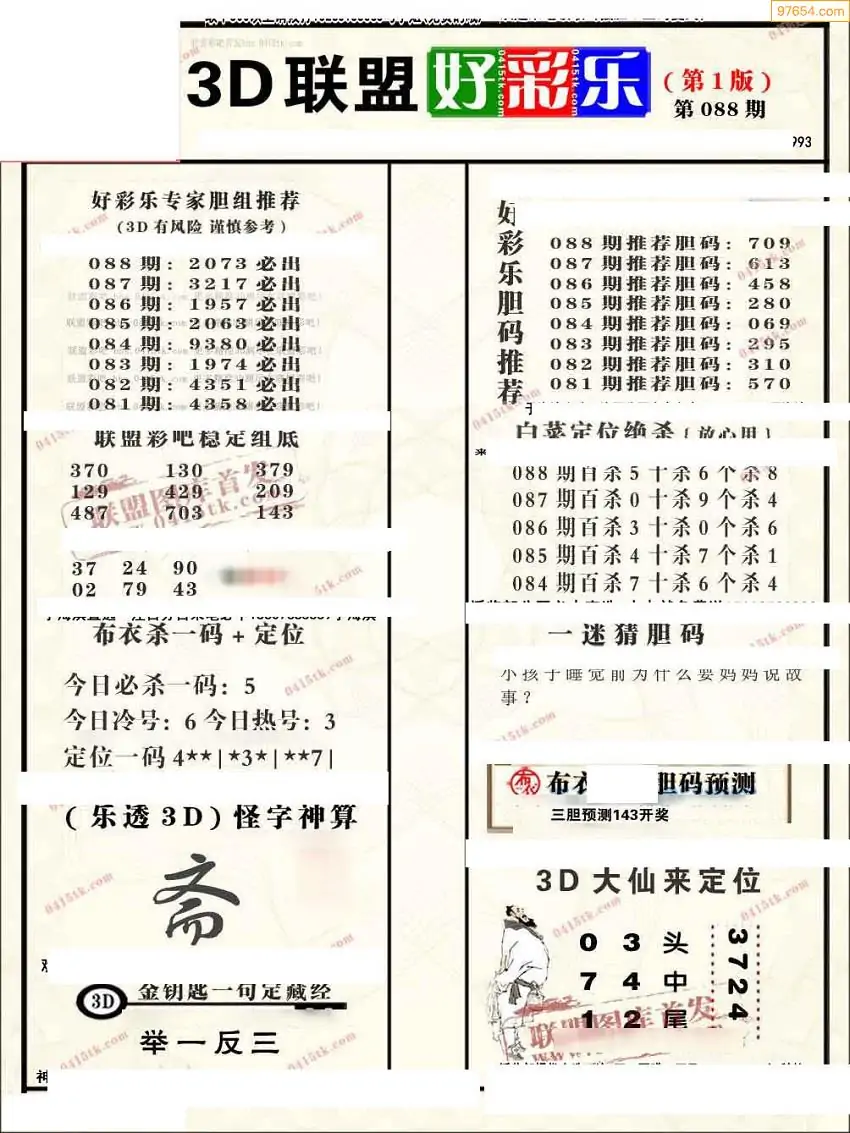 97654.com
3D联盟好彩乐
(第1版)
第088期
993
好彩乐专家胆组推荐
(3D有风险 谨慎参考)
088期: 2073必出
087期: 3217必出
086期: 1957必出
085期: 2063必出
084期: 9380必出
083期: 1974必出
082期: 4351必出
081期: 4358必出
联盟彩吧稳定组底
370 130 379
129 429 209
487 703 143
37 24 90
02 79 43
布衣杀一码+定位
今日必杀一码: 5
今日冷号: 6 今日热号: 3
定位一码 4**|*3*|**7|
(乐透3D)怪字神算
斋
3D 金钥匙一句定藏经
举一反三
好彩乐胆码推荐
088期推荐胆码: 709
087期推荐胆码: 613
086期推荐胆码: 458
085期推荐胆码: 280
084期推荐胆码: 069
083期推荐胆码: 295
082期推荐胆码: 310
081期推荐胆码: 570
白菜定位绝杀(放心用)
088期百杀5十杀6个杀8
087期百杀0十杀9个杀4
086期百杀3十杀0个杀6
085期百杀4十杀7个杀1
084期百杀7十杀6个杀4
一迷猜胆码
小孩子睡觉前为什么要妈妈说故
事?
布衣 胆码预测
三胆预测143开奖
3D大仙来定位
0 3 头
7 4 中
1 2 尾
3724
联盟图库首发
0415tk.com